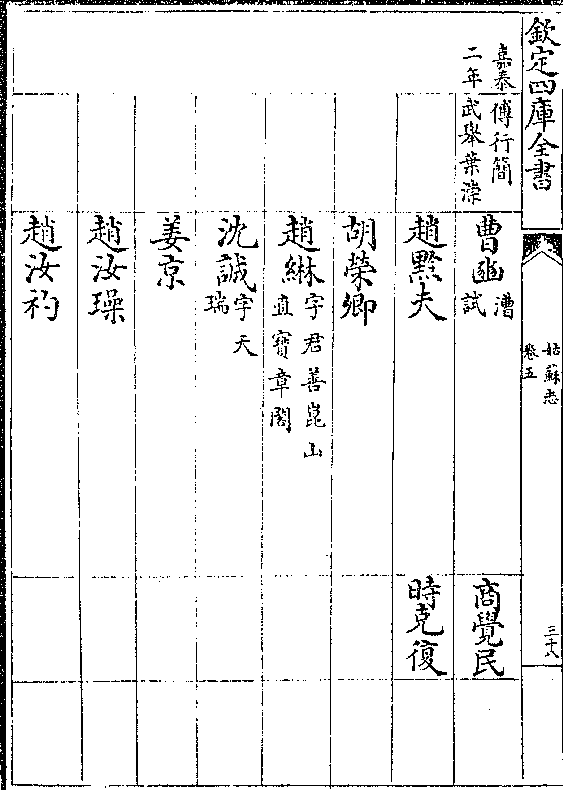 欽定四庫全書
姑蘇志
卷五
三十八
嘉泰二年
傅行簡
武舉葉漴
曹豳漕試
商覺民
趙㸃夫
時克復
胡榮卿
趙綝字君善崑山直寳章閣
沈誠字天瑞
姜京
趙汝璪
趙汝礿